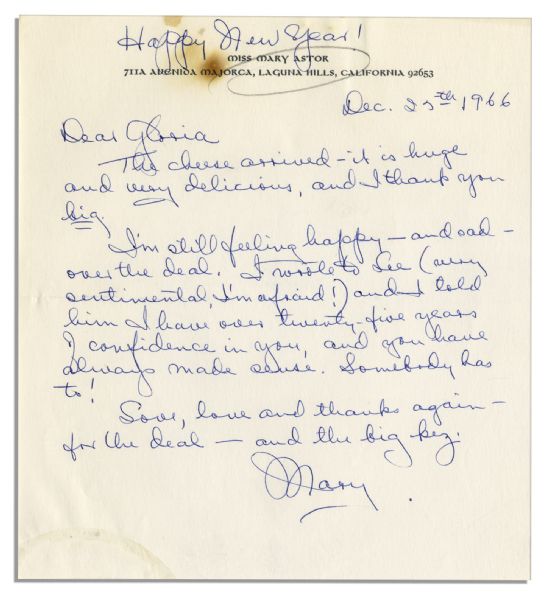 Happy New Year!
MISS MARY ASTOR
711A AVENIDA MAJORCA, LAGUNA HILLS, CALIFORNIA 92653
Dec. 25th 1966
Dear Gloria
The cheese arrived - it is huge
and very delicious, and I thank you
big.
I'm still feeling happy - and sad -
over the deal. I wrote to Lee (very
sentimental, I'm afraid!) and I told
him I have over twenty-five years
of confidence in you, and you have
always made sense. Somebody has
to!
Love, love and thanks again -
for the deal - and the big
Mary